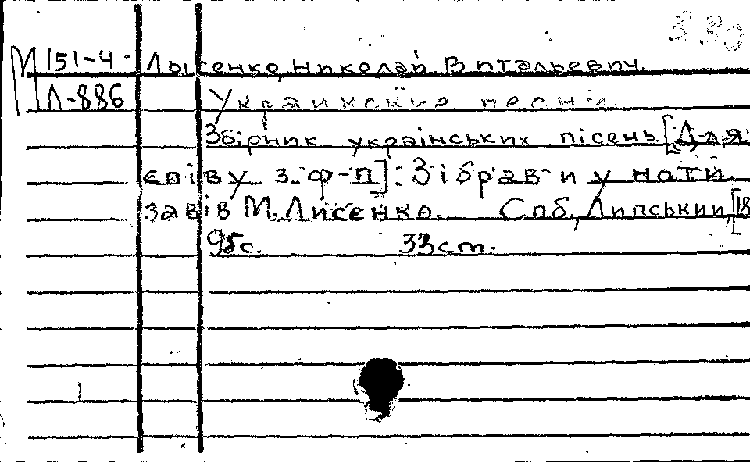 330
М 151-4 Лысенко, Николай Витальевич.
Л-886 Украинские песни
Збірник українських пісень [Для
співу з ф-п]. Зібрав и у ноти
завів М. Лисенко. Спб, Липський, [18
95с. 33ст.